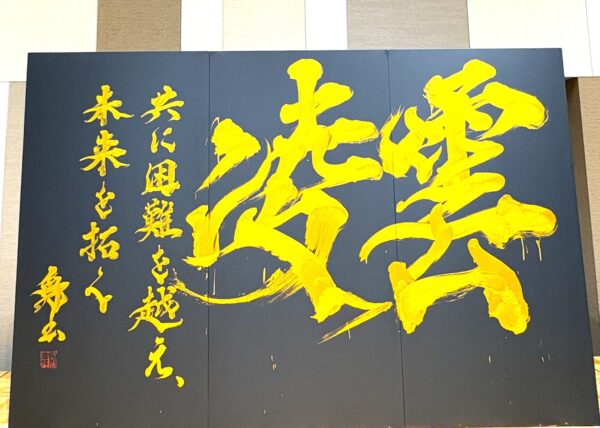 凌雲
共に困難を越え、
未来を拓く